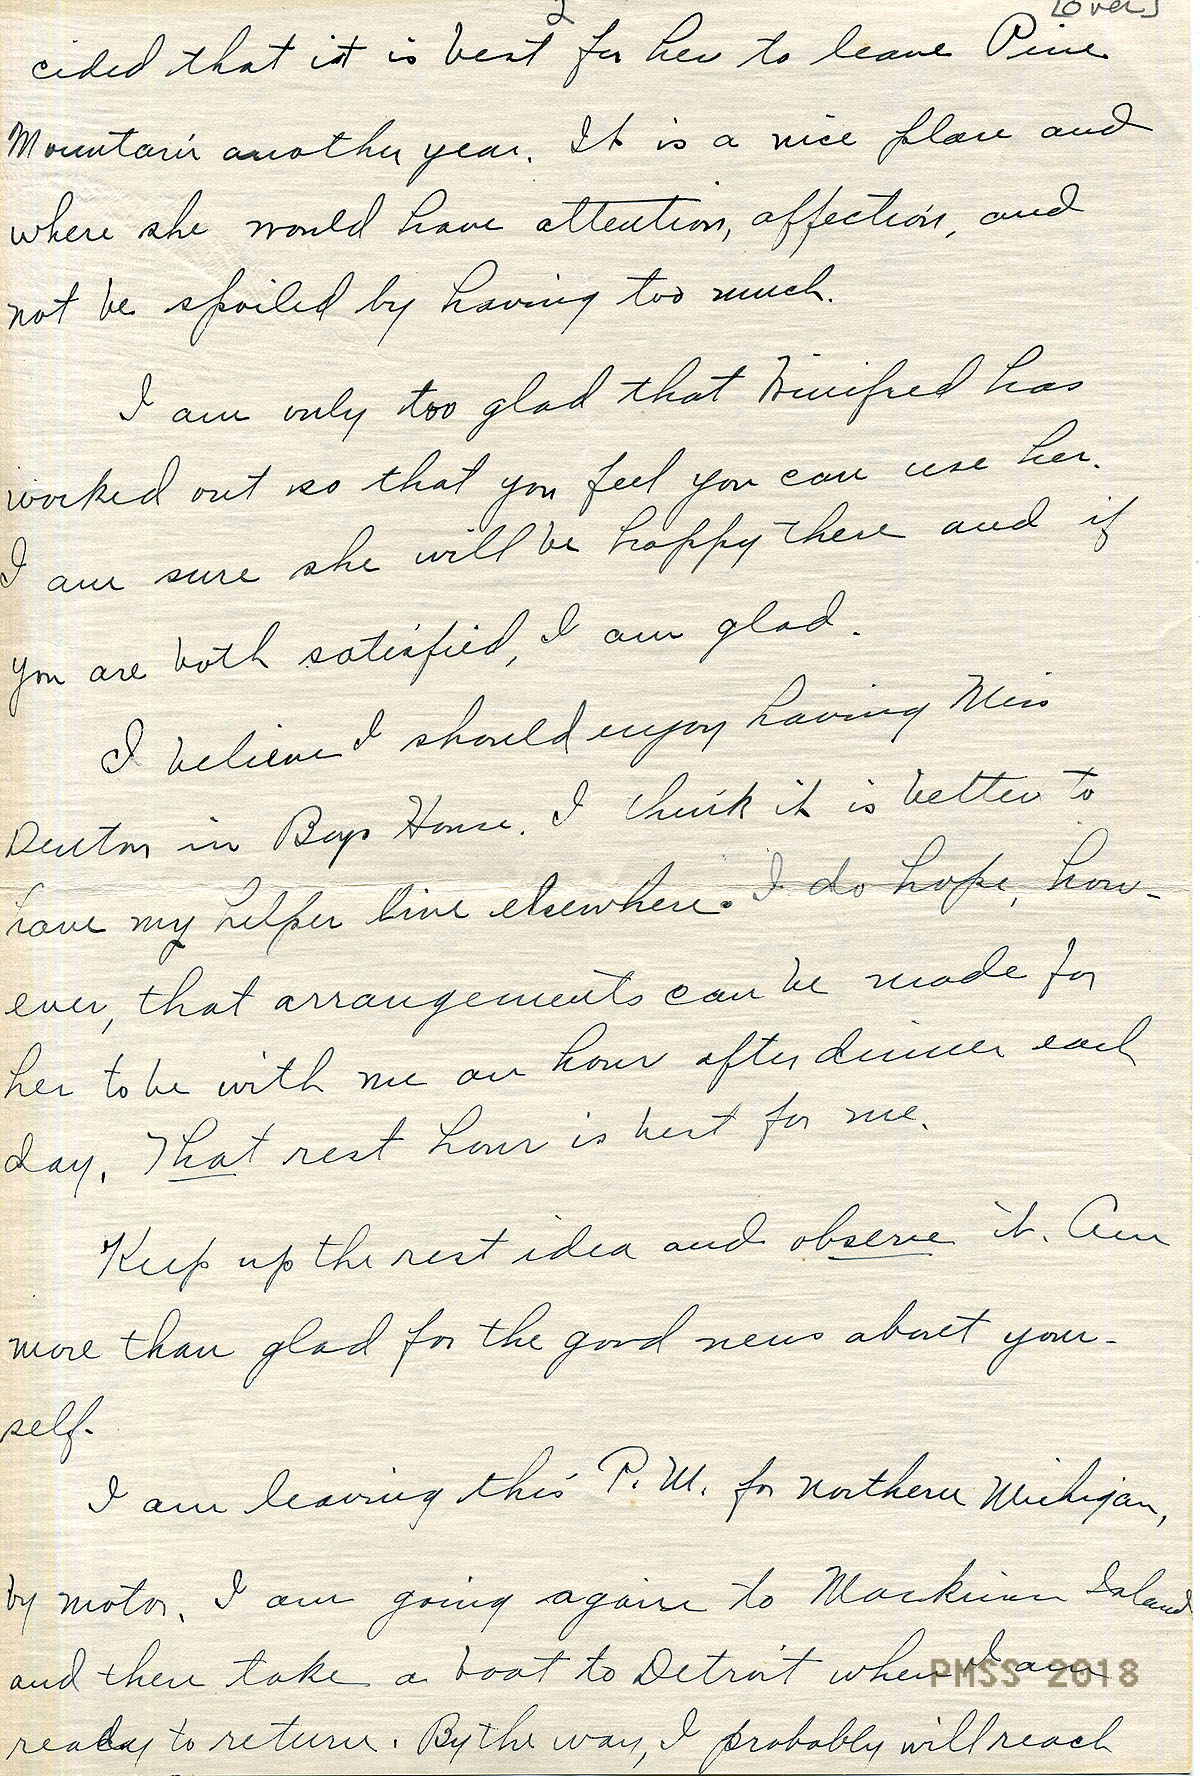 2 [over]
cided that it is best for her to leave Pine
Mountain another year. It is a nice place and
where she would have attention, affection, and
not be spoiled by having too much.
I am only too glad that Winifred has
worked out so that you feel you can use her.
I am sure she will be happy there and if
you are both satisfied, I am glad.
I believe I should enjoy having Miss
Denton in Boys House. I think it is better to
have my helper live elsewhere. I do hope, how-
ever, that arrangements can be made for
her to be with me an hour after dinner each
day. That rest hour is best for me.
Keep up the rest idea and observe it. Am
more than glad for the good news about your-
self.
I am leaving this P.M. for northern Michigan,
by motor. I am going again to Mackinac Island
and then take a boat to Detroit when I am
ready to return. By the way, I probably will reach
PMSS 2018